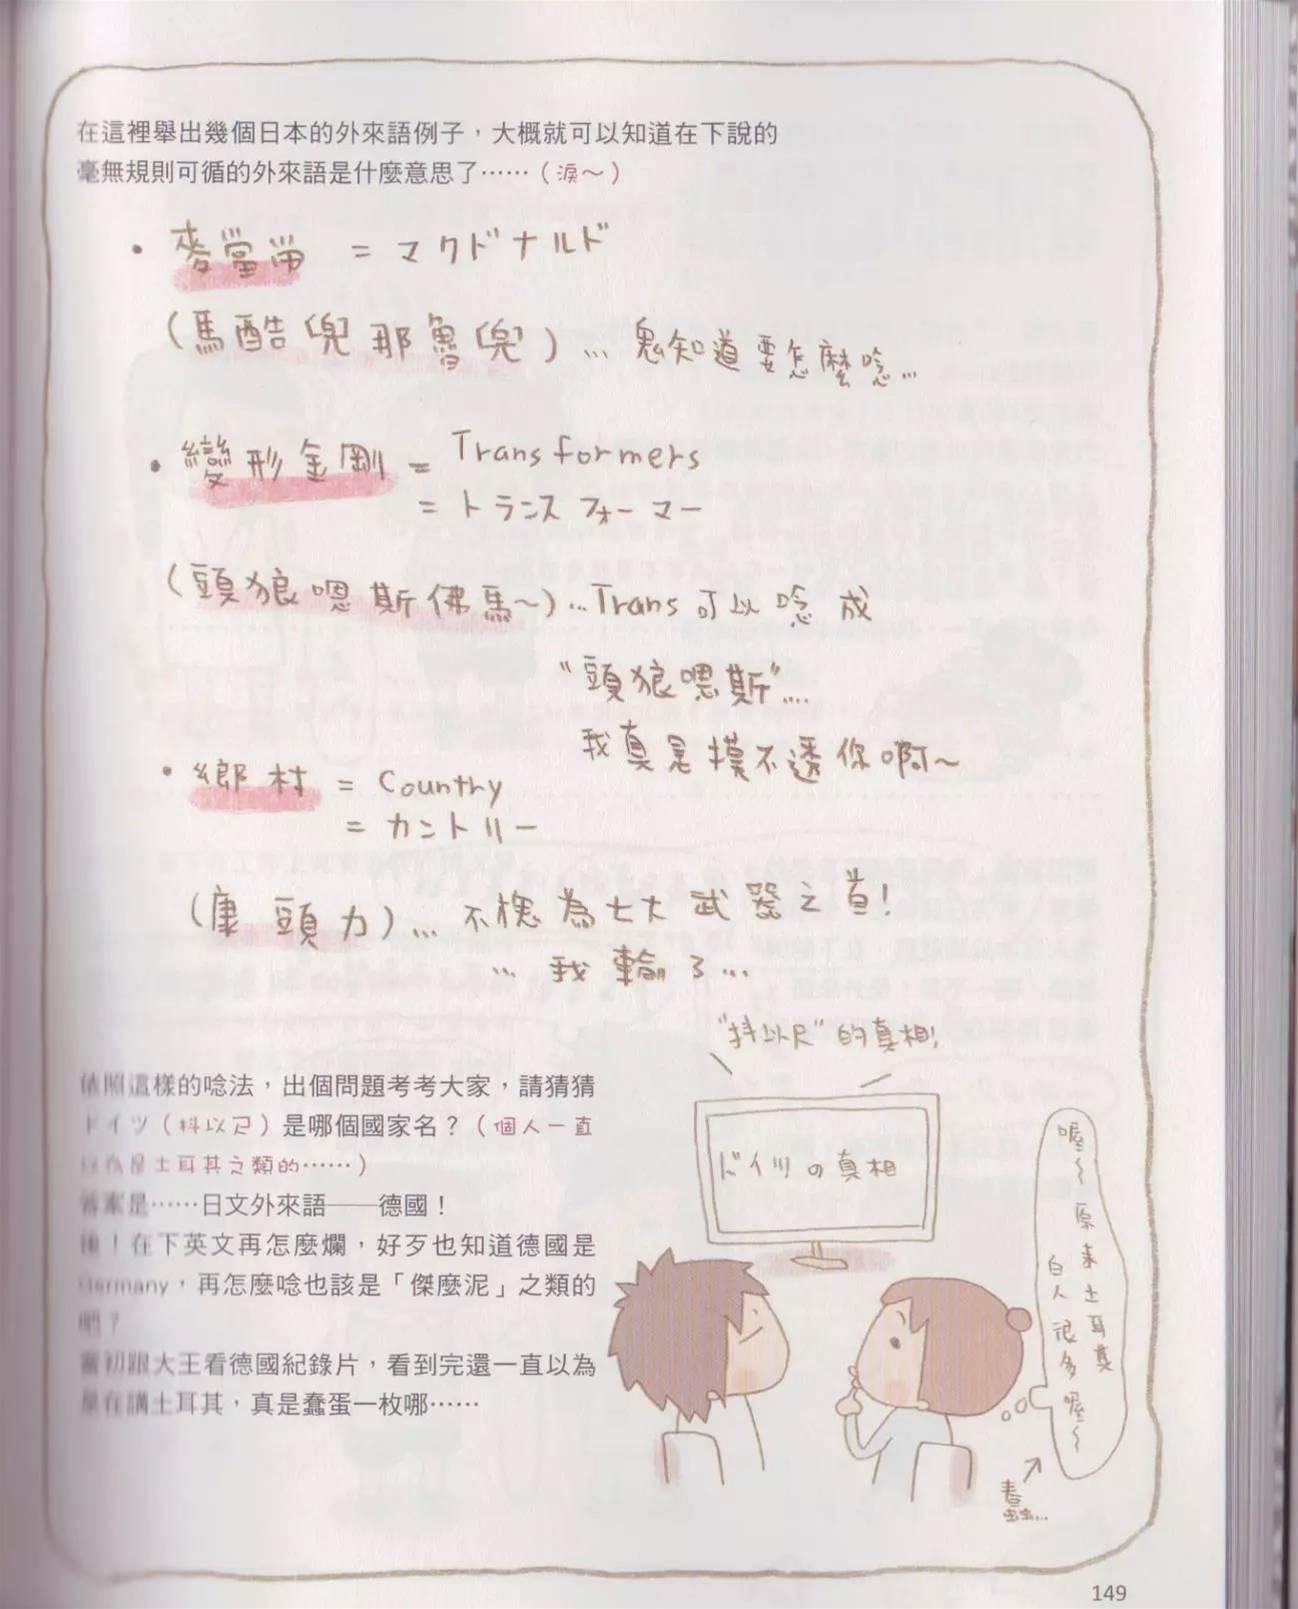 在這裡舉出幾個日本的外來語例子，大概就可以知道在下說的
毫無規則可循的外來語是什麼意思了……（淚～）
• 麥當勞 = マクドナルド
(馬酷兜那魯兜)... 鬼知道要怎麼唸...
• 變形金剛 = Transformers
= トランスフォーマー
(頭狼嗯斯佛馬~)...Trans可以唸成
"頭狼嗯斯"....
我真是摸不透你啊~
• 鄉村 = Country
= カントリー
(康頭力)... 不愧為七大武器之首!
... 我輸了...
依照這樣的唸法，出個問題考考大家，請猜猜
ドイツ（抖以尺）是哪個國家名？（個人一直
以為是土耳其之類的……）
答案是……日文外來語——德國！
後！在下英文再怎麼爛，好歹也知道德國是
Germany，再怎麼唸也該是「傑麼泥」之類的
吧？
當初跟大王看德國紀錄片，看到完還一直以為
是在講土耳其，真是蠢蛋一枚哪……
"抖以尺"的真相!
ドイツの真相
喔~原來土耳其
白人很多喔~
蠢...
149